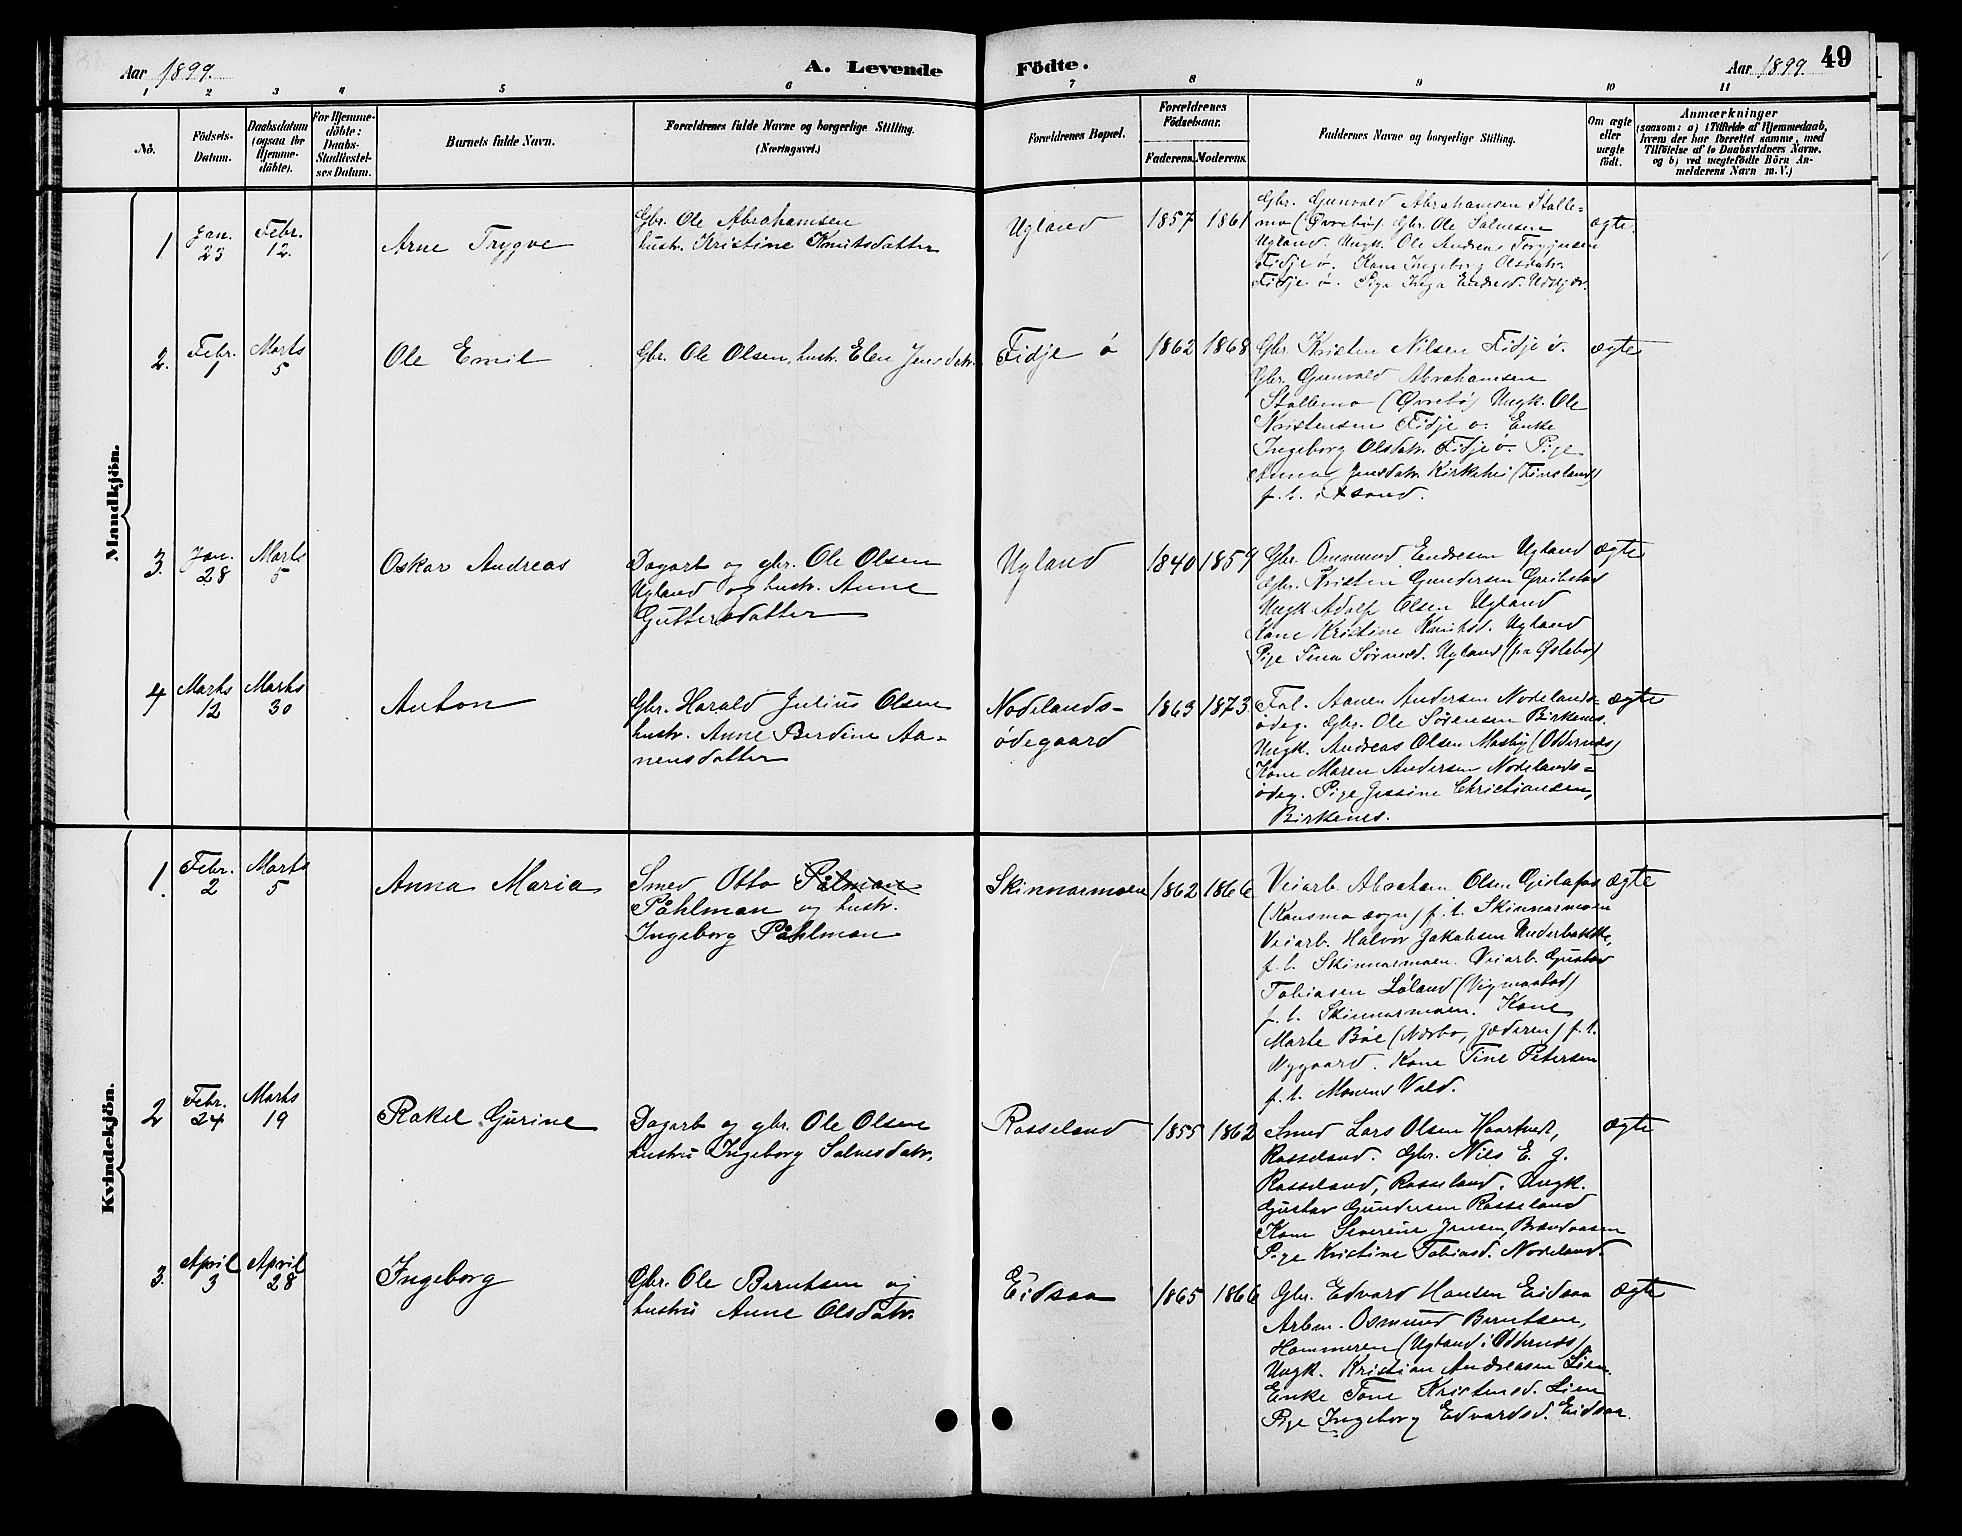 Aar 1899.
A. Levende
Födte.
Aar 1899.
49
1 2 3 4 5 6 7 8 9 10 11
No.
Födsels-
Datum.
Daabsdatum
(ogsaa for
Hjemme-
döbte).
For Hjemme-
döbte:
Daabs-
Stadfæstel-
ses Datum.
Barnets fulde Navn.
Forældrenes fulde Navne og borgerlige Stilling.
(Næringsvei.)
Forældrenes Bopæl.
Forældrenes
Födselsaar.
Faderens. Moderens.
Faddernes Navne og borgerlige Stilling.
Om ægte
eller
uægte
födt.
Anmærkninger
(saasom: a) i Tilfælde af Hjemmedaab,
hvem der har forrettet samme, med
Tilföielse af to Daabsvidners Navne.
og b) ved uægtefödte Börn An-
melderens Navn m. V.)
Mandkjön.
1
Jan.
25
Febr.
12.
Arne Trygve
Gbr. Ole Abrahamsen
hustr. Kristine Knutsdatter
Ugland
1857
1861
Gbr. Gunvald Abrahamsen Stalle-
mo (Øvrebø) Gbr. Ole Salvesen
Ugland. Ungk. Ole Andreas Torgjusen
Fidje ø. Kone Ingeborg Olsdatr.
Fidje ø. Pige Inga Endresd.
ægte.
2.
Febr.
1
Marts
5
Ole Emil
Gbr. Ole Olsen, hustr. Elen Jensdatr.
Fidje ø
1862
1868
Gbr. Kristen Nilsen Fidje ø.
Gbr. Gunvald Abrahamsen
Stallemo (Øvrebø) Ungk. Ole
Kristensen Fidje ø. Enke
Ingeborg Olsdatr. Fidje ø. Pige
Anna Jensdatr. Kirkehei (Finsland)
f. t.
ægte
3.
Jan.
28
Marts
5
Oskar Andreas
Dagarb og gbr. Ole Olsen
Ugland og hustr. Anne
Guttersdatter
Ugland
1840
1859
Gbr. Ommund Endresen Ugland
Gbr. Kristen Gundersen Greibstad
Ungk Adolf Olsen Ugland
Kone Kristine Knutsd. Ugland
Pige Sina Ugland (fra Øslebø)
ægte
4
Marts
12
Marts
30
Anton
Gbr. Harald Julius Olsen
hustr. Anne Berdine Aa-
nensdatter
Nodelands-
ødegaard
1863
1873
Føl. Aanen Andersen Nodelands-
ødeg. Gbr. Ole Sørensen Birkenes.
Ungk. Andreas Olsen Mosby (Oddernes)
Kone Maren Andersen Nodelands-
ødeg. Pige Jessine Christiansen,
Birkenes.
ægte
Kvindekjön.
1.
Febr.
2
Marts
5
Anna Maria
Smed Otto Pålman
Påhlman og hustr.
Ingeborg Påhlman
Skinnarmoen
1862
1866
Veiarb. Abraham Olsen
(Konsmo sogn) f. t. Skinnarmoen
Veiarb. Halvor Jakobsen Underbakke,
f. t. Skinnarmoen. Veiarb. Gustav
Tobiasen Løland (Vigmostad)
f. t. Skinnarmoen. Kone
Marte Bøe (Nærbø, Jæderen) f. t.
Nygaard. Kone Tine Petersen
f. t. Monens Vald.
ægte
2
Febr.
24
Marts
19
Rakel Gurine
Dagarb og gbr. Ole Olsen
hustru Ingeborg Salvesdatr.
Rosseland
1855
1862
Smed Lars Olsen Haartvedt,
Rosseland. Gbr. Nils E. G.
Rosseland, Rosseland. Ungk.
Gustav Gundersen Rosseland
Kone Severine Jensen, Brandaasen
Pige Kristine Tobiasd. Nodeland.
ægte
3.
April
3
April
28
Ingeborg
Gbr. Ole Berntsen og
hustru Anne Olsdatr.
Eidsaa
1865
1866
Gbr. Edvard Hansen Eidsaa
Arbm. Osmund Berntsen,
Hommeren (Ugland i Oddernes)
Ungk. Kristian Andreasen Lien
Enke Tone Kristensd. Lien
Pige Ingeborg Edvardsd. Eidsaa.
ægte